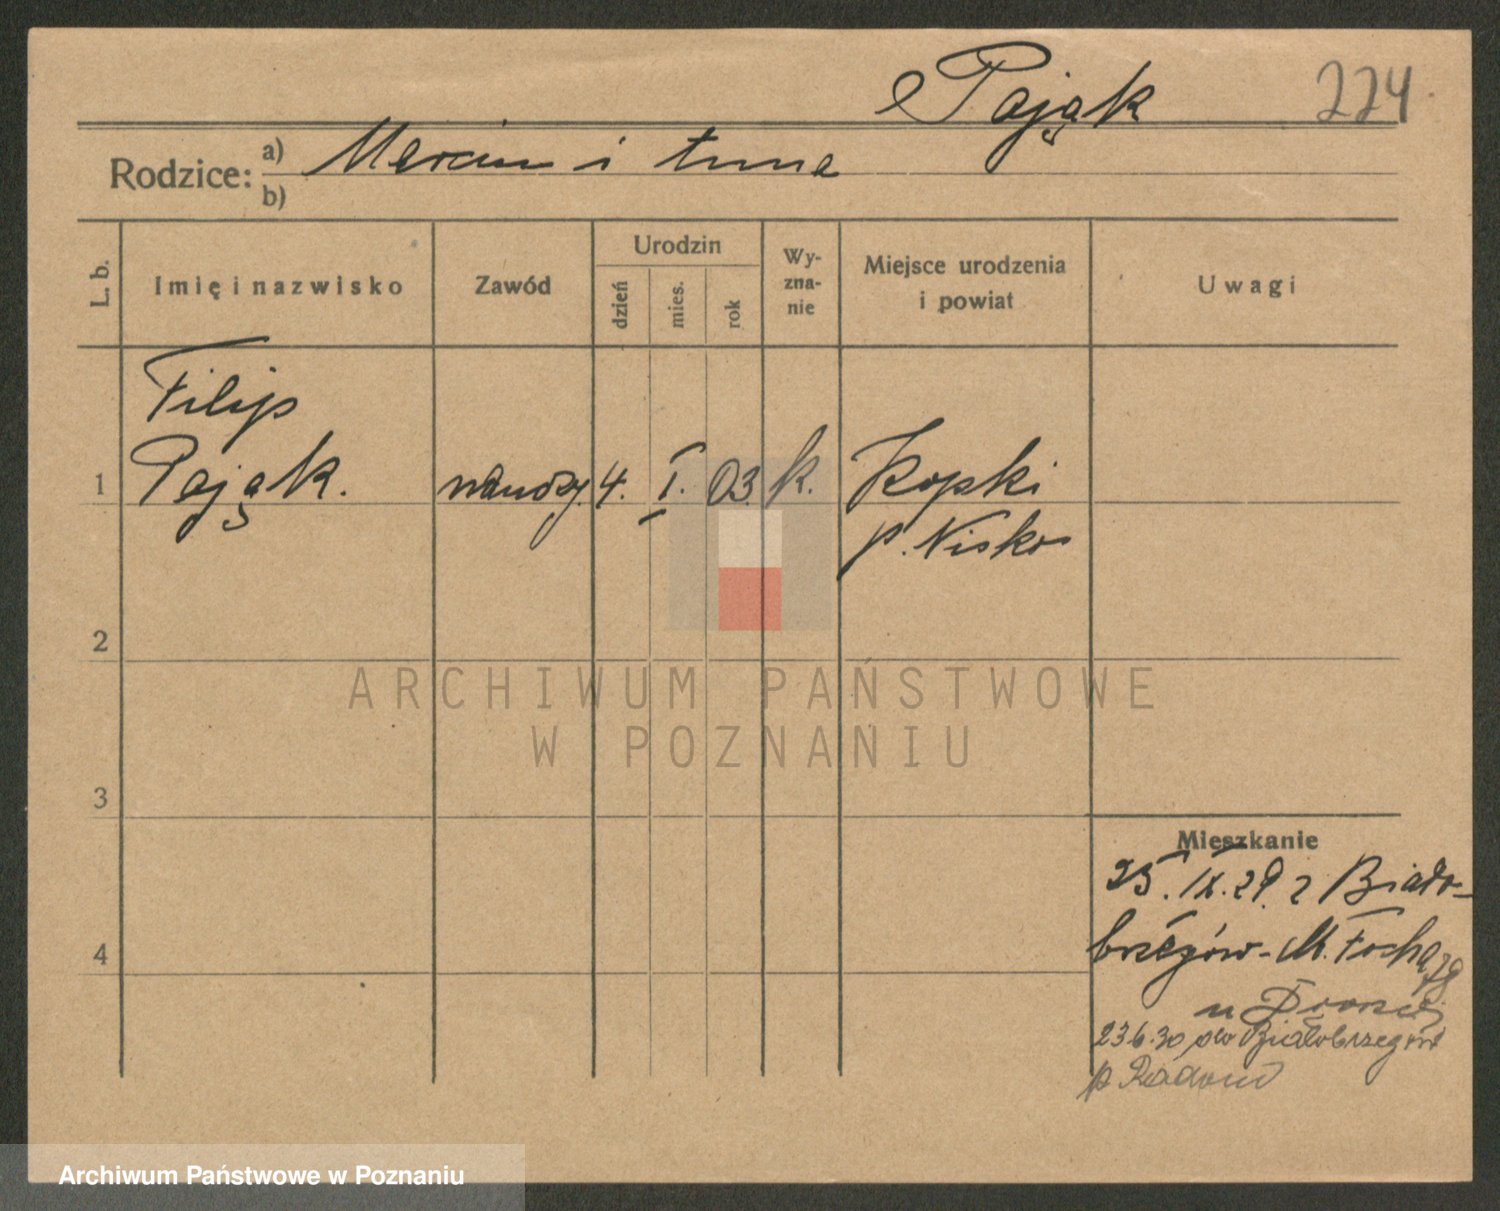 Pająk
224
Rodzice: a) Marcin i Anna
b)
L. b.
Imię i nazwisko
Zawód
Urodzin
dzień
mies.
rok
Wy-
zna-
nie
Miejsce urodzenia
i powiat
Uwagi
Filip
1 Pająk. 4. I. 03 k. Kopki
p. Nisko
2
3
4
Mieszkanie
25. IX. 29. z Biało-
brzegów - M. Focha 79
u
23 6. 30 do Białobrzegów
p Radom
ARCHIWUM PAŃSTWOWE
W POZNANIU
Archiwum Państwowe w Poznaniu